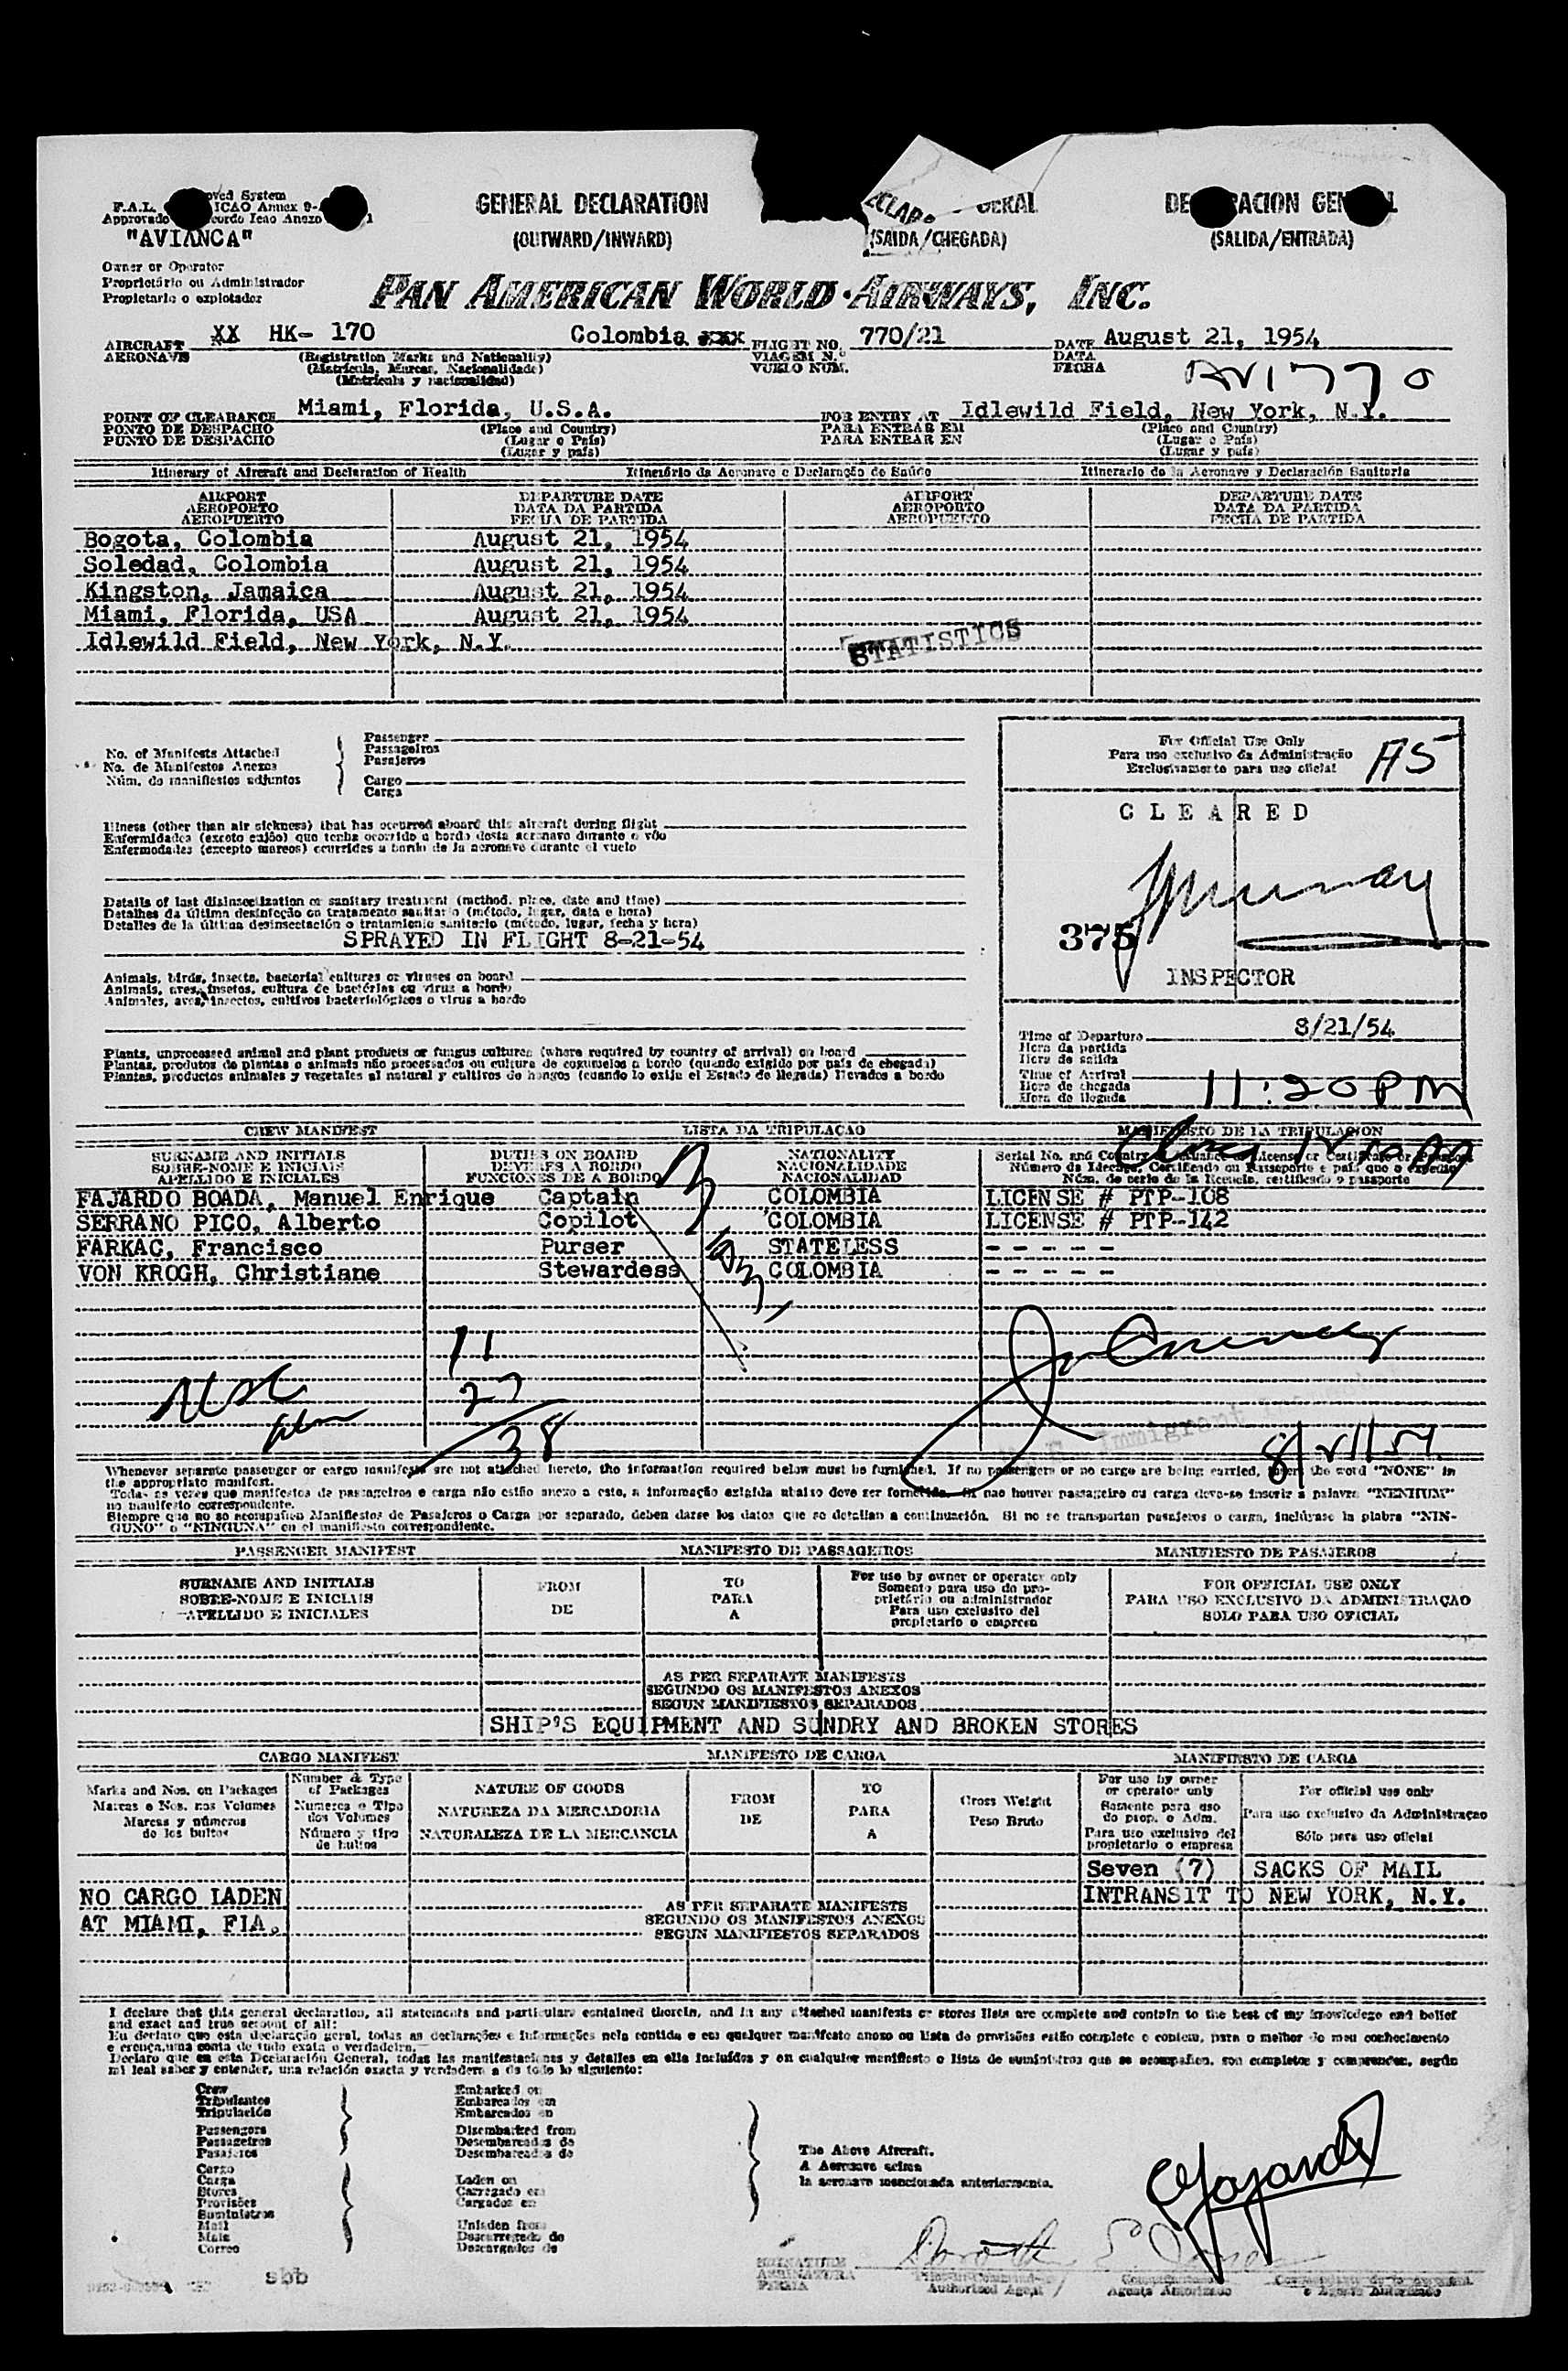 GENERAL DECLARATION
(OUTWARD/INWARD)
(SAIDA/CHEGADA)
(SALIDA/ENTRADA)
"AVIANCA"
Owner or Operator
Proprietário ou Administrador
Propietario o explotador
PAN AMERICAN WORLD AIRWAYS, INC.
AIRCRAFT XX HK- 170 Colombia xxx FLIGHT NO. 770/21 DATE August 21, 1954
AERONAVE (Registration Marks and Nationality) VIAGEM N.º DATA
(Matrícula, Marcas, Nacionalidade) VUELO NUM. FECHA
(Matrícula y nacionalidad)
AV 1770
POINT OF CLEARANCE Miami, Florida, U.S.A. FOR ENTRY AT Idlewild Field, New York, N.Y.
PONTO DE DESPACHO (Place and Country) PARA ENTRAR EM (Place and Country)
PUNTO DE DESPACHO (Lugar e País) PARA ENTRAR EN (Lugar e País)
(Lugar y país) (Lugar y país)
Itinerary of Aircraft and Declaration of Health Itinerário da Aeronave e Declaração de Saúde Itinerario de la Aeronave y Declaración Sanitaria
AIRPORT DEPARTURE DATE AIRPORT DEPARTURE DATE
AEROPORTO DATA DA PARTIDA AEROPORTO DATA DA PARTIDA
AEROPUERTO FECHA DE PARTIDA AEROPUERTO FECHA DE PARTIDA
Bogota, Colombia August 21, 1954
Soledad, Colombia August 21, 1954
Kingston, Jamaica August 21, 1954
Miami, Florida, USA August 21, 1954
Idlewild Field, New York, N.Y.
STATISTICS
No. of Manifests Attached
No. de Manifestos Anexos
Núm. de manifiestos adjuntos
Passenger
Passageiros
Pasajeros
Cargo
Carga
For Official Use Only
Para uso exclusivo da Administração
Exclusivamente para uso oficial
A5
CLEARED
375
INSPECTOR
Illness (other than air sickness) that has occurred aboard this aircraft during flight
Enfermidades (exceto enjôo) que tenha ocorrido a bordo desta aeronave durante o vôo
Enfermedades (excepto mareos) ocurridas a bordo de la aeronave durante el vuelo
Details of last disinsectization or sanitary treatment (method, place, date and time)
Detalhes da última desinfecção ou tratamento sanitario (método, lugar, data e hora)
Detalles de la última desinsectación o tratamiento sanitario (método, lugar, fecha y hora)
SPRAYED IN FLIGHT 8-21-54
Animals, birds, insects, bacterial cultures or viruses on board
Animais, aves, insetos, cultura de bactérias ou virus a bordo
Animales, aves, insectos, cultivos bacteriológicos o virus a bordo
Plants, unprocessed animal and plant products or fungus cultures (where required by country of arrival) on board
Plantas, produtos de plantas o animais não processados ou cultura de cogumelos a bordo (quando exigido por país de chegada)
Plantas, productos animales y vegetales al natural y cultivos de hongos (cuando lo exija el Estado de llegada) llevados a bordo
Time of Departure 8/21/54
Hora da partida
Hora de salida
Time of Arrival 11:20 PM
Hora de chegada
Hora de llegada
CREW MANIFEST LISTA DA TRIPULAÇAO MANIFIESTO DE LA TRIPULACION
SURNAME AND INITIALS DUTIES ON BOARD NATIONALITY
SOBRE-NOME E INICIAIS DEVERES A BORDO NACIONALIDADE
APELLIDO E INICIALES FUNCIONES DE A BORDO NACIONALIDAD
FAJARDO BOADA, Manuel Enrique Captain COLOMBIA LICENSE # PTP-168
SERRANO PICO, Alberto Copilot COLOMBIA LICENSE # PTP-142
FARKAC, Francisco Purser STATELESS - - - - -
VON KROGH, Christiane Stewardess COLOMBIA - - - - -
11
27
38
8/21/54
Whenever separate passenger or cargo manifests are not attached hereto, the information required below must be furnished. If no passengers or no cargo are being carried, insert the word "NONE" in
the appropriate manifest.
Todas as vezes que manifestos de passageiros e carga não estão anexo a esto, a informação exigida abaixo deve ser fornecida. Si nao houver passageiro ou carga deve-se inserir a palavra "NENHUM"
no manifesto correspondente.
Siempre que no se acompañen Manifiestos de Pasajeros o Carga por separado, deben darse los datos que se detallan a continuación. Si no se transportan pasajeros o carga, inclúyase la plabra "NIN-
GUNO" o "NINGUNA" en el manifiesto correspondiente.
PASSENGER MANIFEST MANIFESTO DE PASSAGEIROS MANIFIESTO DE PASAJEROS
SURNAME AND INITIALS FROM TO For use by owner or operator only FOR OFFICIAL USE ONLY
SOBRE-NOME E INICIAIS DE PARA Somento para uso do pro- PARA USO EXCLUSIVO DA ADMINISTRAÇAO
APELLIDO E INICIALES A prietário ou administrador SOLO PARA USO OFICIAL
Para uso exclusivo del
propietario o empresa
AS PER SEPARATE MANIFESTS
SEGUNDO OS MANIFESTOS ANEXOS
SEGUN MANIFIESTOS SEPARADOS
SHIP'S EQUIPMENT AND SUNDRY AND BROKEN STORES
CARGO MANIFEST MANIFESTO DE CARGA MANIFIESTO DE CARGA
Marks and Nos. on Packages Number & Type of Packages NATURE OF GOODS FROM TO Gross Weight For use by owner or operator only For official use only
Marcas e Nos. nos Volumes Numeros e Tipo dos Volumes NATUREZA DA MERCADORIA DE PARA Peso Bruto Somente para uso do prop. o Adm. Para uso exclusivo da Administraçao
Marcas y números de los bultos Número y tipo de bultos NATURALEZA DE LA MERCANCIA A Para uso exclusivo del propietario o empresa Sólo para uso oficial
Seven (7) SACKS OF MAIL
NO CARGO LADEN INTRANSIT TO NEW YORK, N.Y.
AT MIAMI, FLA.
AS PER SEPARATE MANIFESTS
SEGUNDO OS MANIFESTOS ANEXOS
SEGUN MANIFIESTOS SEPARADOS
I declare that this general declaration, all statements and particulars contained therein, and in any attached manifests or stores lists are complete and contain to the best of my knowledege and belief
and exact and true account of all:
Eu declaro que esta declaração geral, todas as declarações e informações nela contida e em qualquer manifesto anexo ou lista de provisões estão completo e contem, para o melhor do meu conhecimento
e crença, uma conta de tudo exata e verdadeira.
Declaro que en esta Declaración General, todas las manifestaciones y detalles en ella incluídos y en cualquier manifiesto o lista de suministros que se acompañen, son completos y comprenden, según
mi leal saber y entender, una relación exacta y verdadera a de todo lo siguiente:
Crew
Tripulantes
Tripulación
Passengers
Passageiros
Pasajeros
Cargo
Carga
Stores
Provisões
Suministros
Mail
Mala
Correo
Embarked on
Embarcados em
Embarcados en
Disembarked from
Desembarcados de
Desembarcados de
Laden on
Carregado em
Cargados en
Unladen from
Descarregado de
Descargados de
The Above Aircraft.
A Aeronave acima
la aeronave mencionada anteriormente.
SIGNATURE
ASSINATURA
FIRMA
Authorized Agent
sbb